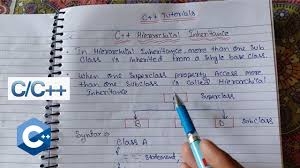 C++ Tutorials
C++ Hierarchical Inheritance
• In Hierarchical Inheritance, more than one Sub
Class is inherited from a Single base class.
• When one Superclass property Access more
than one Subclass is called Hierarchical
Inheritance
C/C++
C++
Superclass
B
SubClass
Syntax
Class A
Statement